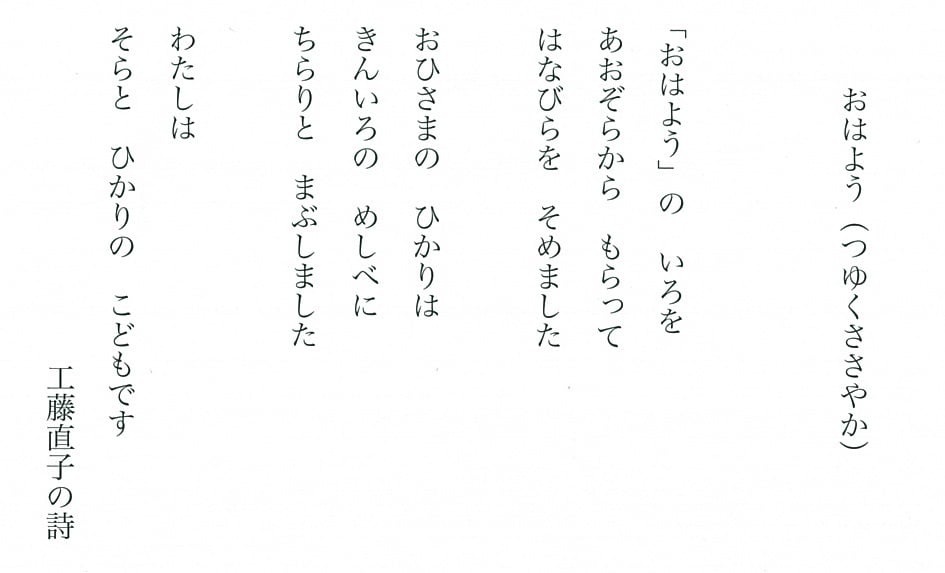 おはよう（つゆくささやか）
「おはよう」の　いろを
あおぞらから　もらって
はなびらを　そめました
おひさまの　ひかりは
きんいろの　めしべに
ちらりと　まぶしました
わたしは
そらと　ひかりの　こどもです
工藤直子の詩